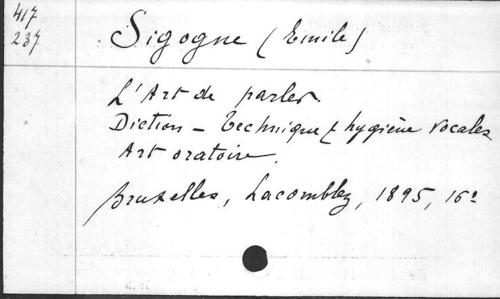 417
237
Sigogne (Emile)
L'Art de parler.
Diction - Technique & hygiène vocales
Art oratoire.
Bruxelles, Lacomblez, 1895, 16º